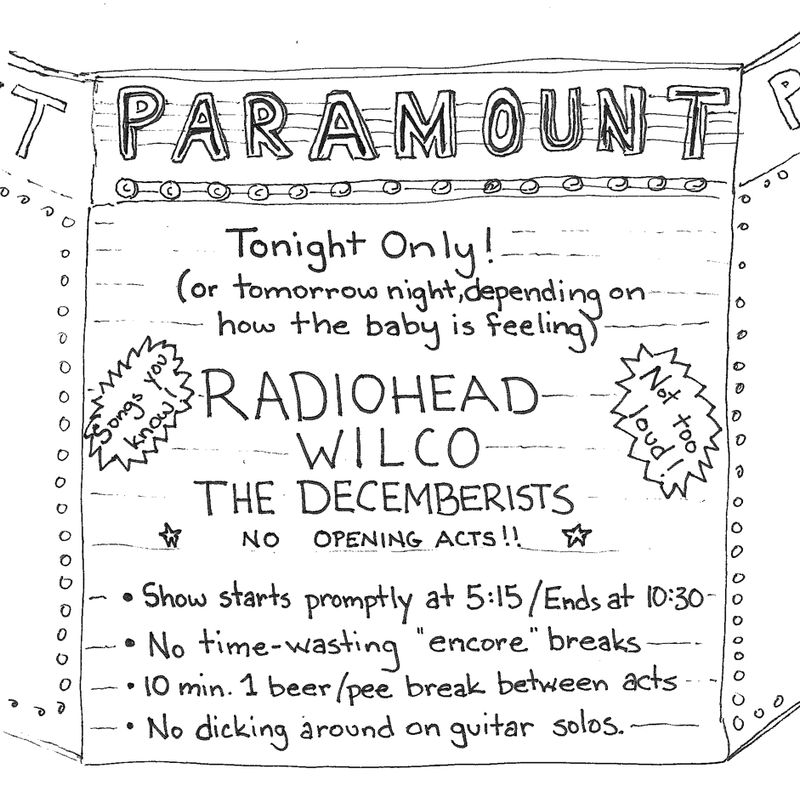 T
PARAMOUNT
P
Tonight Only!
(or tomorrow night, depending on
how the baby is feeling)
Songs you
know!
RADIOHEAD
Not too
loud!
WILCO
THE DECEMBERISTS
NO OPENING ACTS!!
• Show starts promptly at 5:15/Ends at 10:30
• No time-wasting "encore" breaks
• 10 min. 1 beer/pee break between acts
• No dicking around on guitar solos.